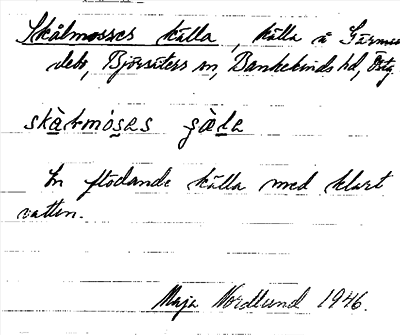 Skålmosses källa, källa å Gärmes-
debo, Björsäters sn, Bankekinds hd, Östg.
skàlmòsəs çàla
En flödande källa med klart
vatten.
Maja Nordlund 1946.